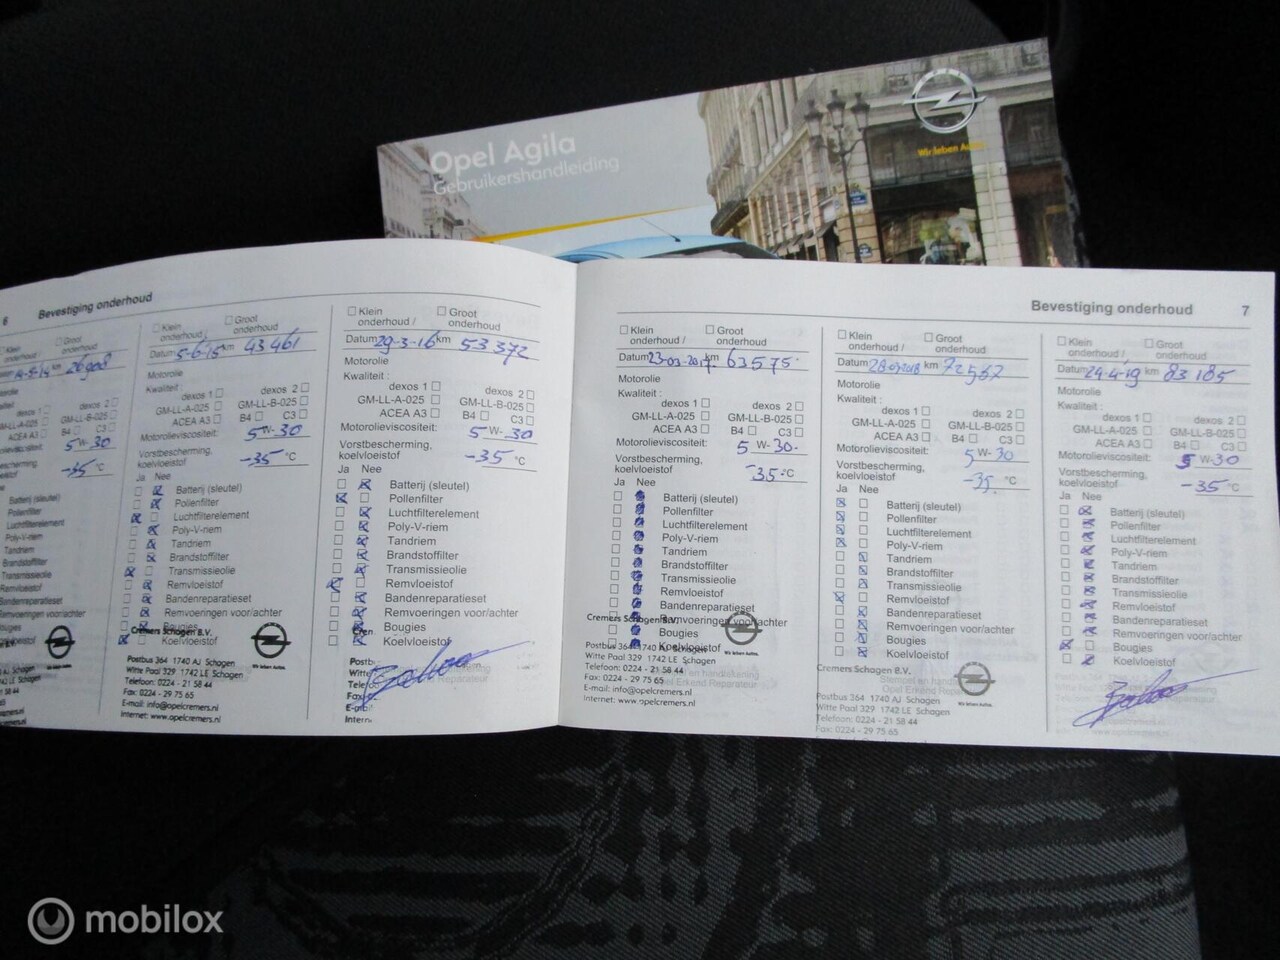 Opel Agila
Gebruikershandleiding
Wir leben
6 Bevestiging onderhoud
Klein onderhoud / Groot onderhoud
km
Motorolie
dexos 1 dexos 2
GM-LL-A-025 GM-LL-B-025
ACEA A3 B4 C3
5 W-30
-35 °C
Ja Nee
Batterij (sleutel)
Pollenfilter
Luchtfilterelement
Poly-V-riem
Tandriem
Brandstoffilter
Transmissieolie
Remvloeistof
Bandenreparatieset
Remvoeringen voor/achter
Bougies
Klein onderhoud / Groot onderhoud
Datum 5-6-15 km 43461
Motorolie
Kwaliteit :
dexos 1 dexos 2
GM-LL-A-025 GM-LL-B-025
ACEA A3 B4 C3
Motorolieviscositeit: 5 W-30
Vorstbescherming,
koelvloeistof -35 °C
Ja Nee
Batterij (sleutel)
Pollenfilter
Luchtfilterelement
Poly-V-riem
Tandriem
Brandstoffilter
Transmissieolie
Remvloeistof
Bandenreparatieset
Remvoeringen voor/achter
Bougies
Koelvloeistof
Cremers Schagen B.V.
Wir leben Autos.
Postbus 364 1740 AJ Schagen
Witte Paal 329 1742 LE Schagen
Telefoon: 0224 - 21 58 44
Fax: 0224 - 29 75 65
E-mail: info@opelcremers.nl
Internet: www.opelcremers.nl
Klein onderhoud / Groot onderhoud
Datum 29-3-16 km 53372
Motorolie
Kwaliteit :
dexos 1 dexos 2
GM-LL-A-025 GM-LL-B-025
ACEA A3 B4 C3
Motorolieviscositeit: 5 W-30
Vorstbescherming,
koelvloeistof -35 °C
Ja Nee
Batterij (sleutel)
Pollenfilter
Luchtfilterelement
Poly-V-riem
Tandriem
Brandstoffilter
Transmissieolie
Remvloeistof
Bandenreparatieset
Remvoeringen voor/achter
Bougies
Koelvloeistof
Bevestiging onderhoud 7
Klein onderhoud / Groot onderhoud
Datum 23-03-2017. km 63575
Motorolie
Kwaliteit :
dexos 1 dexos 2
GM-LL-A-025 GM-LL-B-025
ACEA A3 B4 C3
Motorolieviscositeit: 5 W-30
Vorstbescherming,
koelvloeistof -35 °C
Ja Nee
Batterij (sleutel)
Pollenfilter
Luchtfilterelement
Poly-V-riem
Tandriem
Brandstoffilter
Transmissieolie
Remvloeistof
Bandenreparatieset
Remvoeringen voor/achter
Bougies
Koelvloeistof
Cremers Schagen B.V.
Postbus 364 1740 AJ Schagen
Witte Paal 329 1742 LE Schagen
Telefoon: 0224 - 21 58 44
Fax: 0224 - 29 75 65
E-mail: info@opelcremers.nl
Internet: www.opelcremers.nl
Klein onderhoud / Groot onderhoud
Datum km 72567
Motorolie
Kwaliteit :
dexos 1 dexos 2
GM-LL-A-025 GM-LL-B-025
ACEA A3 B4 C3
Motorolieviscositeit: 5 W-30
Vorstbescherming,
koelvloeistof -35 °C
Ja Nee
Batterij (sleutel)
Pollenfilter
Luchtfilterelement
Poly-V-riem
Tandriem
Brandstoffilter
Transmissieolie
Remvloeistof
Bandenreparatieset
Remvoeringen voor/achter
Bougies
Koelvloeistof
Cremers Schagen B.V.
Wir leben Autos.
Postbus 364 1740 AJ Schagen
Witte Paal 329 1742 LE Schagen
Telefoon: 0224 - 21 58 44
Fax: 0224 - 29 75 65
Klein onderhoud / Groot onderhoud
Datum 24-4-19 km 83185
Motorolie
Kwaliteit :
dexos 1 dexos 2
GM-LL-A-025 GM-LL-B-025
ACEA A3 B4 C3
Motorolieviscositeit: 5 W-30
Vorstbescherming,
koelvloeistof -35 °C
Ja Nee
Batterij (sleutel)
Pollenfilter
Luchtfilterelement
Poly-V-riem
Tandriem
Brandstoffilter
Transmissieolie
Remvloeistof
Bandenreparatieset
Remvoeringen voor/achter
Bougies
Koelvloeistof
mobilox